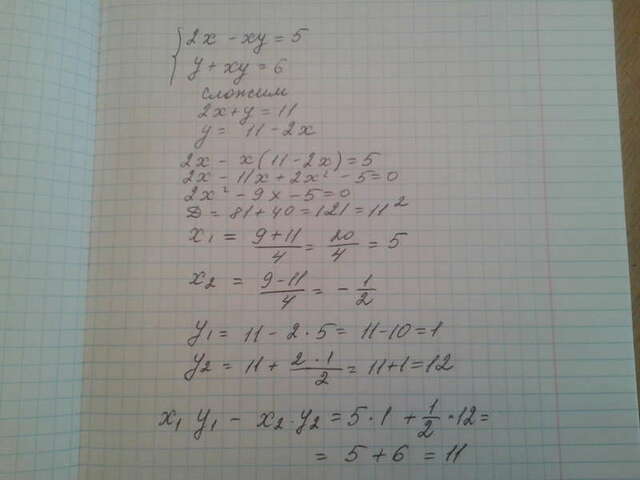 2x - xy = 5
y + xy = 6
сложим
2x + y = 11
y = 11 - 2x
2x - x(11 - 2x) = 5
2x - 11x + 2x² - 5 = 0
2x² - 9x - 5 = 0
D = 81 + 40 = 121 = 11²
x₁ = (9+11)/4 = 20/4 = 5
x₂ = (9-11)/4 = - 1/2
y₁ = 11 - 2·5 = 11-10 = 1
y₂ = 11 + (2·1)/2 = 11+1 = 12
x₁ y₁ - x₂·y₂ = 5·1 + 1/2·12 =
= 5 + 6 = 11